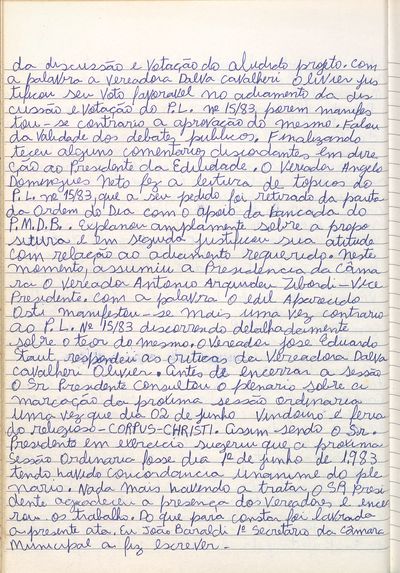 da discussão e votação do aludido projeto. Com
a palavra a vereadora Dalva Cavalheri Olivier jus
tificou seu voto favoravel no adiamento da dis
cussão e votação do P.L. nº 15/83, porem manifes
tou-se contrario a aprovação do mesmo. Falou
da validade dos debates publicos. Finalizando
teceu alguns comentarios discordantes em dire
ção ao Presidente da Edilidade. O Vereador Angelo
Domingues Neto fez a leitura de topicos do
P.L. nº 15/83, que a seu pedido foi retirado da pauta
da Ordem do Dia com o apoio da bancada do
P.M.D.B.. Explanou amplamente sobre a propo
situra e em seguida justificou sua atitude
com relação ao adiamento requerido. Neste
momento, assumiu a Presidencia da Câma
ra o Vereador Antonio Zibordi - Vice
Presidente. Com a palavra o edil Aparecido
Osti manifestou-se mais uma vez contrario
ao P.L. Nº 15/83 discorrendo detalhadamente
sobre o teor do mesmo. O Vereador Jose Eduardo
Staut, respondeu as criticas da Vereadora Dalva
Cavalheri Olivier. Antes de encerrar a sessão
O Sr Presidente consultou o plenario sobre a
marcação da proxima sessão ordinaria
uma vez que dia 02 de junho vindouro é feria
do religioso - CORPUS-CHRISTI. Assim sendo o Sr.
Presidente em exercicio sugeriu que a proxima
Sessão Ordinaria fosse dia 1º de junho de 1.983
tendo havido concordancia unanime do ple
nario. Nada mais havendo a tratar o SR Presi
dente agradeceu a presença dos Vereadores e encer
rou os trabalho. Do que para constar foi lavrada
a presente ata. Eu João Baraldi 1º Secretario da Câmara
Municipal a fiz escrever.-